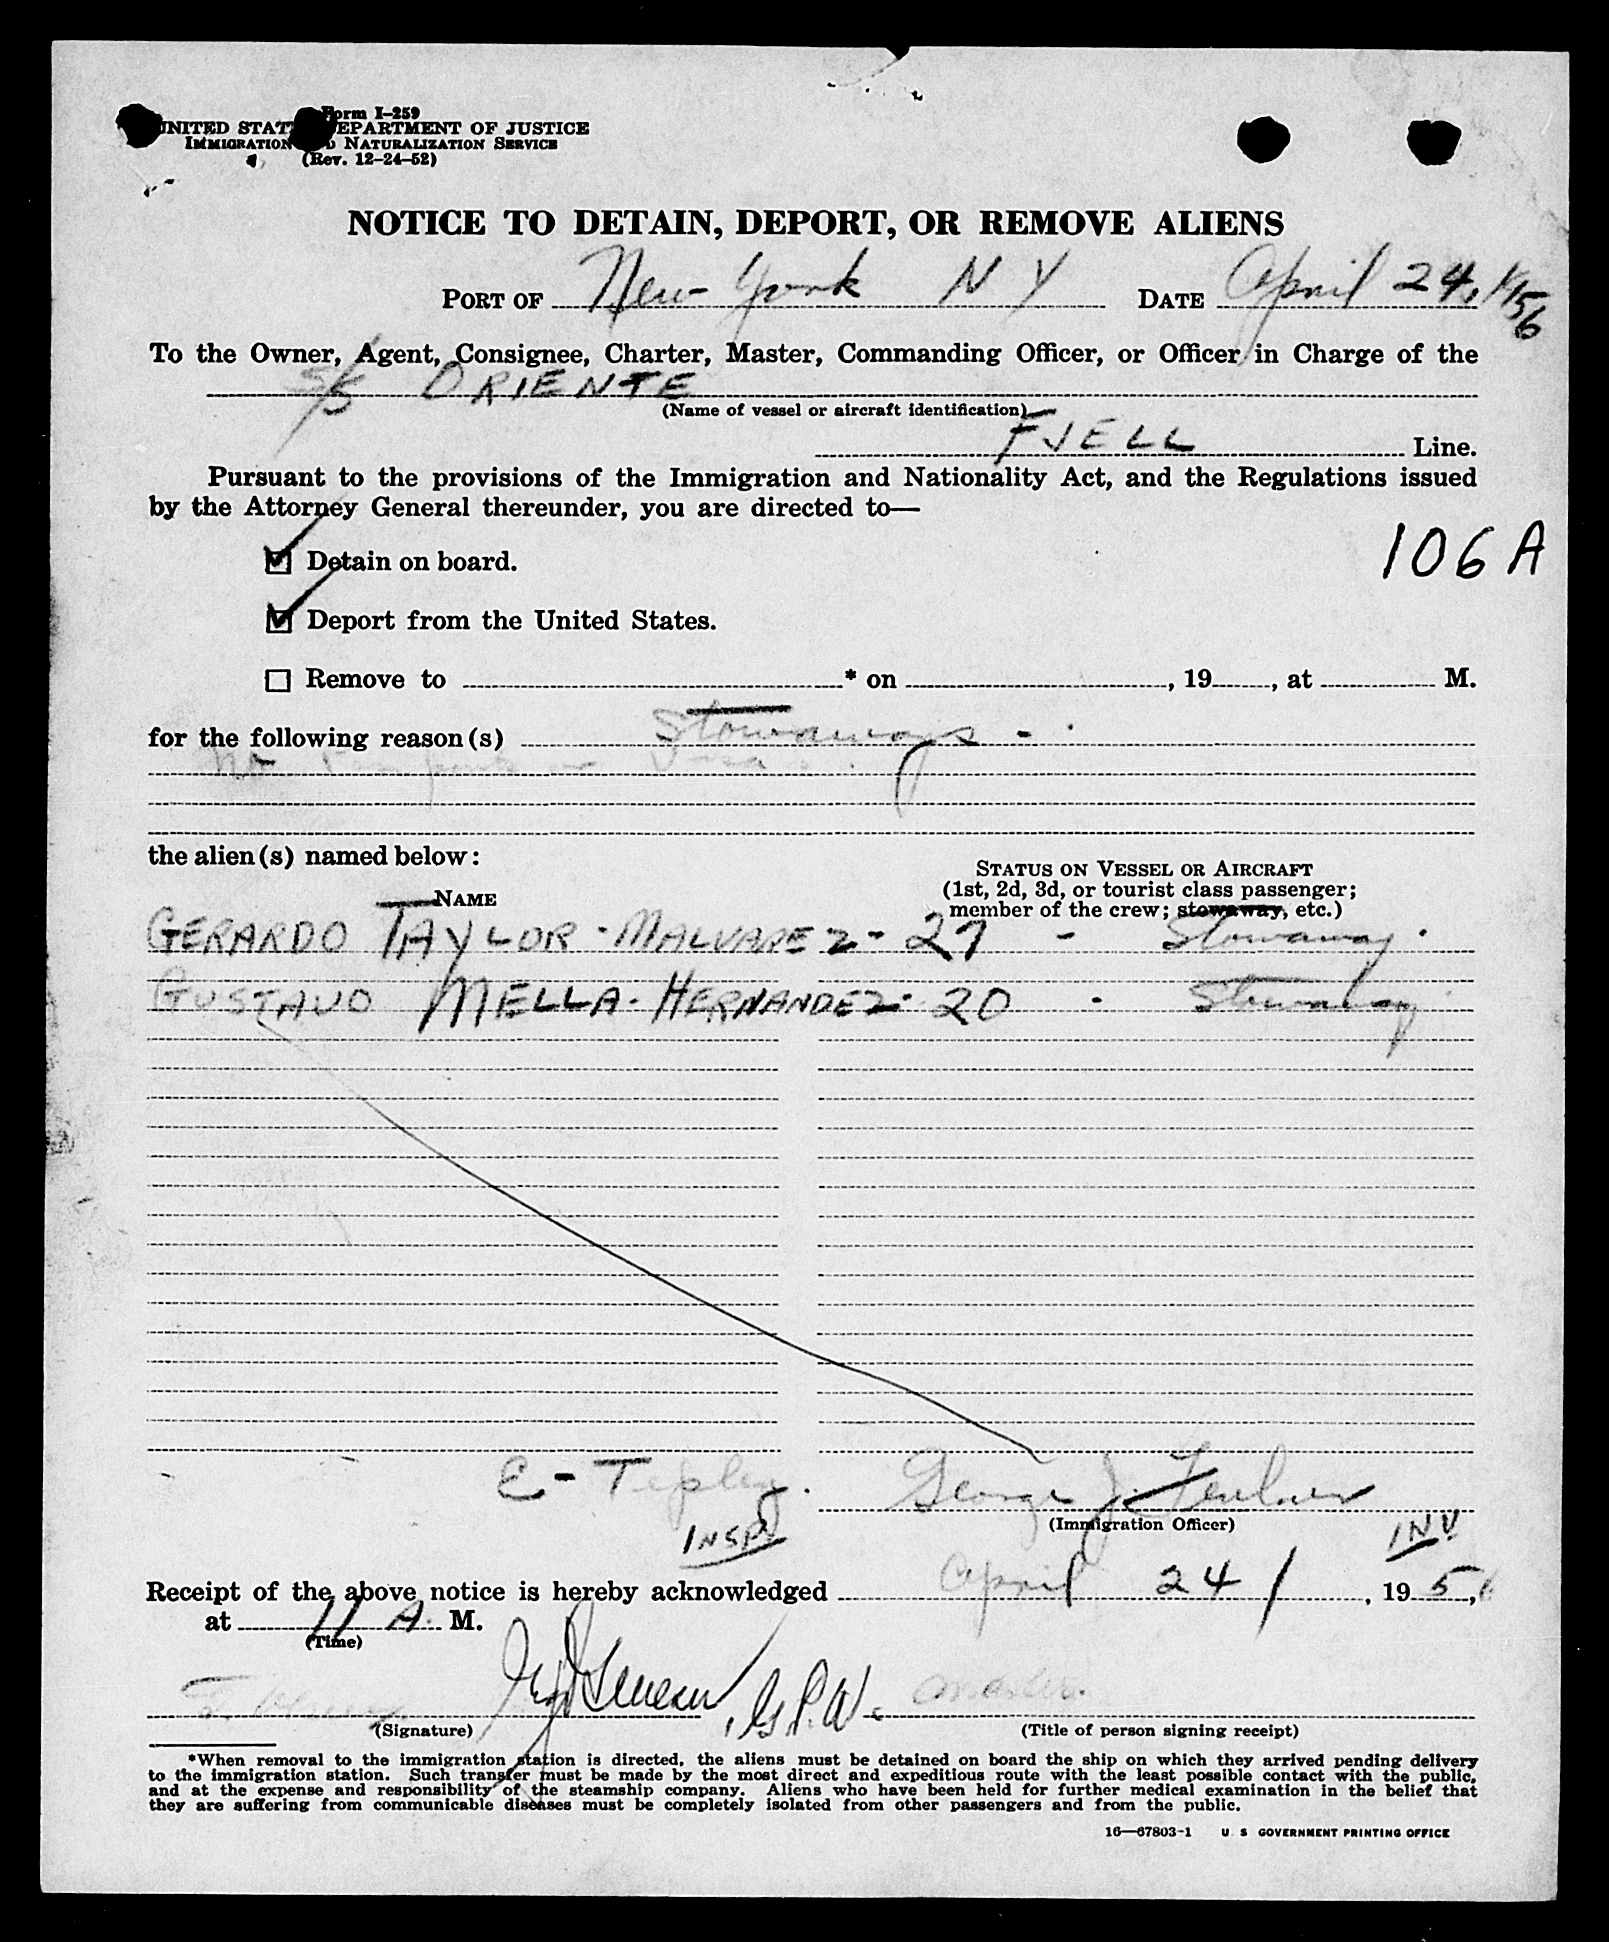 Form I-259
UNITED STAT EPARTMENT OF JUSTICE
IMMIGRATION D NATURALIZATION SERVICE
(Rev. 12-24-52)
NOTICE TO DETAIN, DEPORT, OR REMOVE ALIENS
PORT OF New York N Y DATE April 24, 1956
To the Owner, Agent, Consignee, Charter, Master, Commanding Officer, or Officer in Charge of the
S/S ORIENTE
(Name of vessel or aircraft identification)
FJELL Line.
Pursuant to the provisions of the Immigration and Nationality Act, and the Regulations issued
by the Attorney General thereunder, you are directed to—
106 A
☑ Detain on board.
☑ Deport from the United States.
☐ Remove to * on , 19 , at M.
for the following reason(s) Stowaways -
No Passports or Visa
the alien(s) named below:
STATUS ON VESSEL OR AIRCRAFT
(1st, 2d, 3d, or tourist class passenger;
NAME member of the crew; stowaway, etc.)
GERARDO TAYLOR - MALVAREZ - 27 - Stowaway.
GUSTAVO MELLA - HERNANDEZ - 20 - Stowaway
E - Tepley. George J.
(Immigration Officer)
INSP. INV
Receipt of the above notice is hereby acknowledged April 24 / , 1956,
at 11 A. M.
(Time)
Master.
(Signature) (Title of person signing receipt)
*When removal to the immigration station is directed, the aliens must be detained on board the ship on which they arrived pending delivery
to the immigration station. Such transfer must be made by the most direct and expeditious route with the least possible contact with the public,
and at the expense and responsibility of the steamship company. Aliens who have been held for further medical examination in the belief that
they are suffering from communicable diseases must be completely isolated from other passengers and from the public.
16—67803-1 U S GOVERNMENT PRINTING OFFICE